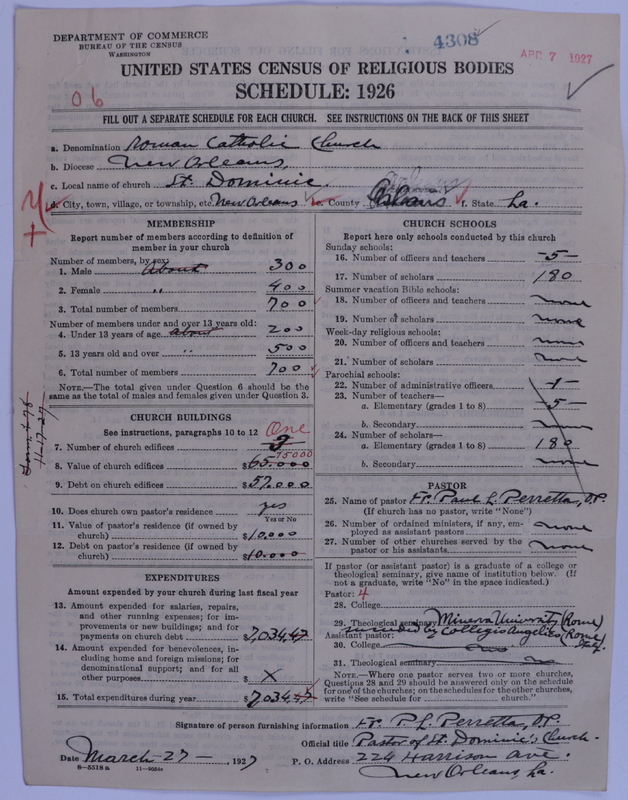 DEPARTMENT OF COMMERCE
BUREAU OF THE CENSUS
WASHINGTON
4308
APR 7 1927
UNITED STATES CENSUS OF RELIGIOUS BODIES
SCHEDULE: 1926
06
FILL OUT A SEPARATE SCHEDULE FOR EACH CHURCH. SEE INSTRUCTIONS ON THE BACK OF THIS SHEET
a. Denomination Roman Catholic Church
b. Diocese New Orleans,
c. Local name of church St. Dominic.
d. City, town, village, or township, etc. New Orleans e. County Orleans f. State La.
MEMBERSHIP
Report number of members according to definition of
member in your church
Number of members, by sex:
1. Male About 300
2. Female " 400
3. Total number of members 700
Number of members under and over 13 years old:
4. Under 13 years of age about 200
5. 13 years old and over " 500
6. Total number of members 700
NOTE.—The total given under Question 6 should be the
same as the total of males and females given under Question 3.
CHURCH BUILDINGS
See instructions, paragraphs 10 to 12 One
7. Number of church edifices
75000
8. Value of church edifices $65.000
9. Debt on church edifices $57.000
10. Does church own pastor's residence yes
Yes or No
11. Value of pastor's residence (if owned by
church) $10,000
12. Debt on pastor's residence (if owned by
church) $10.000
EXPENDITURES
Amount expended by your church during last fiscal year
13. Amount expended for salaries, repairs,
and other running expenses; for im-
provements or new buildings; and for
payments on church debt $7,034.47
14. Amount expended for benevolences, in-
cluding home and foreign missions; for
denominational support; and for all
other purposes $ X
15. Total expenditures during year $7,034
CHURCH SCHOOLS
Report here only schools conducted by this church
Sunday schools:
16. Number of officers and teachers -5-
17. Number of scholars 180
Summer vacation Bible schools:
18. Number of officers and teachers none
19. Number of scholars none
Week-day religious schools:
20. Number of officers and teachers none
21. Number of scholars none
Parochial schools:
22. Number of administrative officers -1-
23. Number of teachers—
a. Elementary (grades 1 to 8) -5-
b. Secondary none
24. Number of scholars—
a. Elementary (grades 1 to 8) 180
b. Secondary none
PASTOR
25. Name of pastor Fr. Paul L. Perretta, O.P.
(If church has no pastor, write "None")
26. Number of ordained ministers, if any, em-
ployed as assistant pastors none
27. Number of other churches served by the
pastor or his assistants none
If pastor (or assistant pastor) is a graduate of a college or
theological seminary, give name of institution below. (If
not a graduate, write "No" in the space indicated.)
Pastor: 4
28. College
29. Theological seminary Minerva University (Rome)
Assistant pastor: succeeded by Collegio Angelico (Rome)
30. College
31. Theological seminary
NOTE.—Where one pastor serves two or more churches,
Questions 28 and 29 should be answered only on the schedule
for one of the churches; on the schedules for the other churches,
write "See schedule for church."
Signature of person furnishing information Fr. P. L. Perretta, O.P.
Official title Pastor of St. Dominic's Church.
Date March 27-, 1927 P. O. Address 224 Harrison Ave.
8—5518a 11—9054 New Orleans, La.